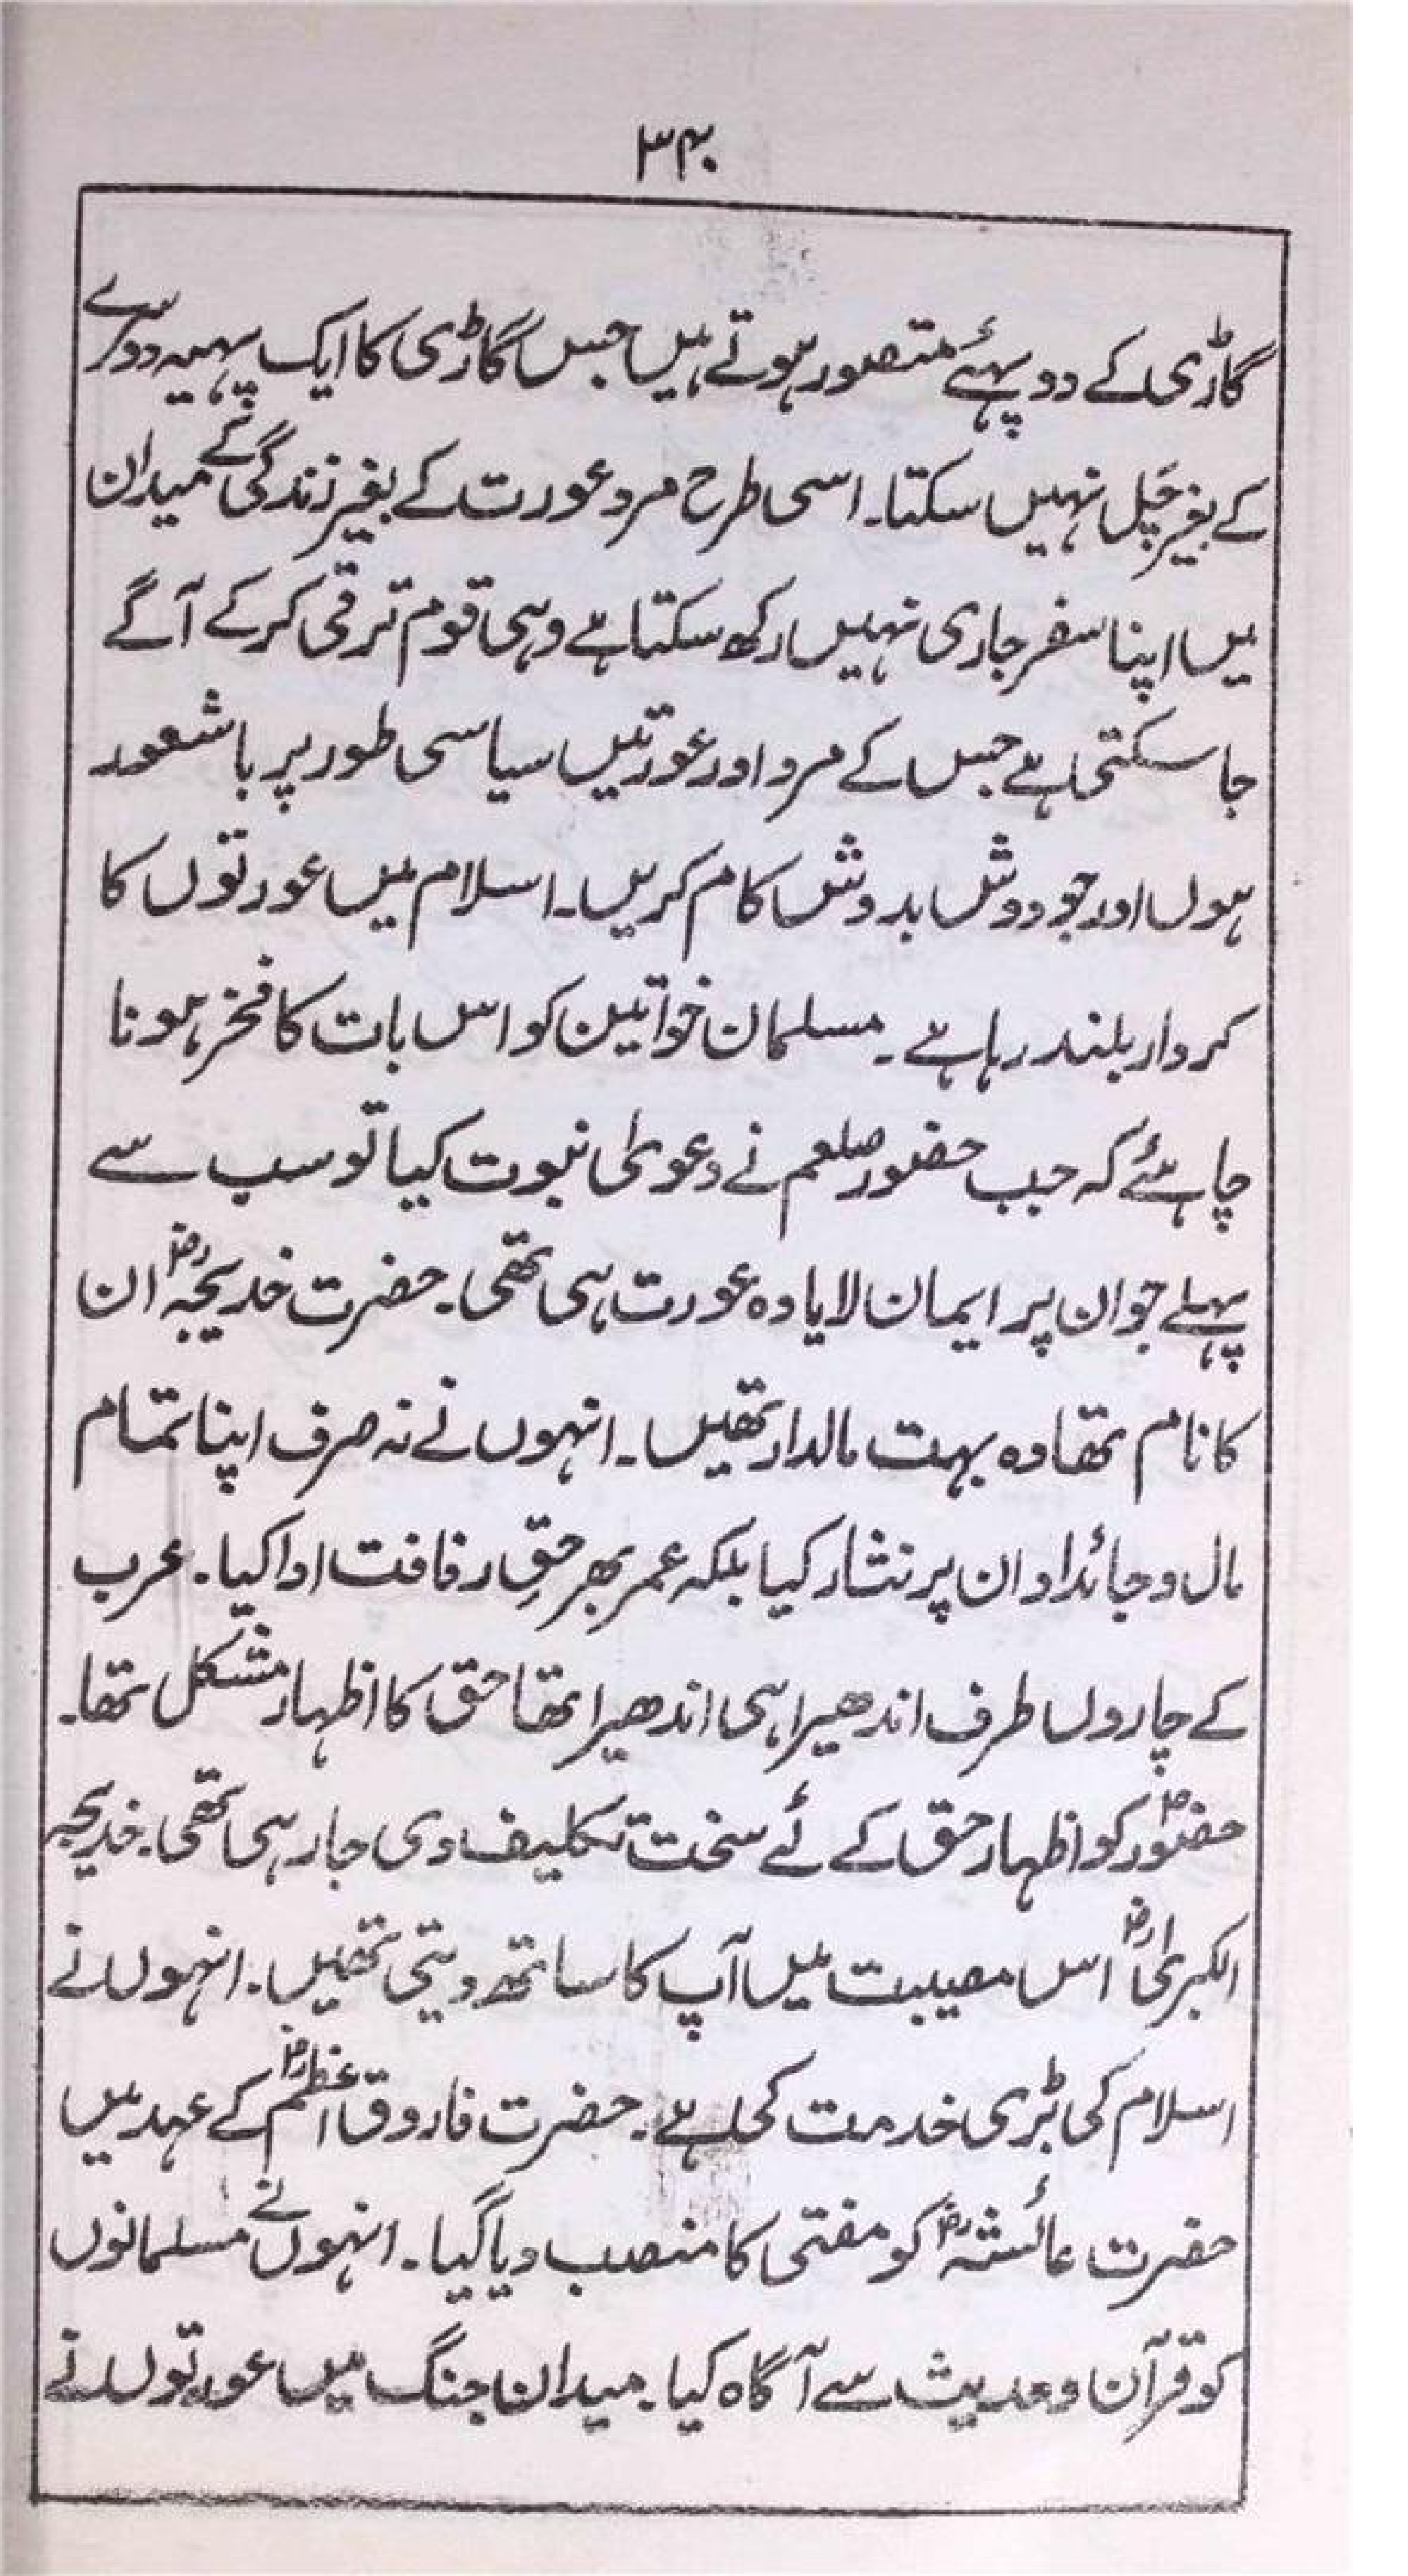 ۳۴۰
گاڑی کے دو پہئے متصور ہوتے ہیں جس گاڑی کا ایک پہیہ دوسرے
کے بغیر چل نہیں سکتا۔ اسی طرح مرد عورت کے بغیر زندگی کے میدان
میں اپنا سفر جاری نہیں رکھ سکتا ہے وہی قوم ترقی کر کے آگے
جا سکتی ہے جس کے مرد اور عورتیں سیاسی طور پر با شعور
ہوں اور جو دوش بدوش کام کریں۔ اسلام میں عورتوں کا
کردار بلند رہا ہے ۔ مسلمان خواتین کو اس بات کا فخر ہونا
چاہئے کہ جب حضور صلعم نے دعویٰ نبوت کیا تو سب سے
پہلے جو ان پر ایمان لایا وہ عورت ہی تھی۔ حضرت خدیجہؓ ان
کا نام تھا وہ بہت مالدار تھیں۔ انہوں نے نہ صرف اپنا تمام
مال و جائداد ان پر نثار کیا بلکہ عمر بھر حقِ رفاقت ادا کیا۔ عرب
کے چاروں طرف اندھیرا ہی اندھیرا تھا حق کا اظہار مشکل تھا۔
حضورؐ کو اظہار حق کے لئے سخت تکلیف دی جا رہی تھی۔ خدیجہ
الکبریٰؓ اس مصیبت میں آپ کا ساتھ دیتی تھیں۔ انہوں نے
اسلام کی بڑی خدمت کی ہے۔ حضرت فاروق اعظمؓ کے عہد میں
حضرت عائشہؓ کو مفتی کا منصب دیا گیا۔ انہوں نے مسلمانوں
کو قرآن و حدیث سے آگاہ کیا۔ میدان جنگ میں عورتوں نے